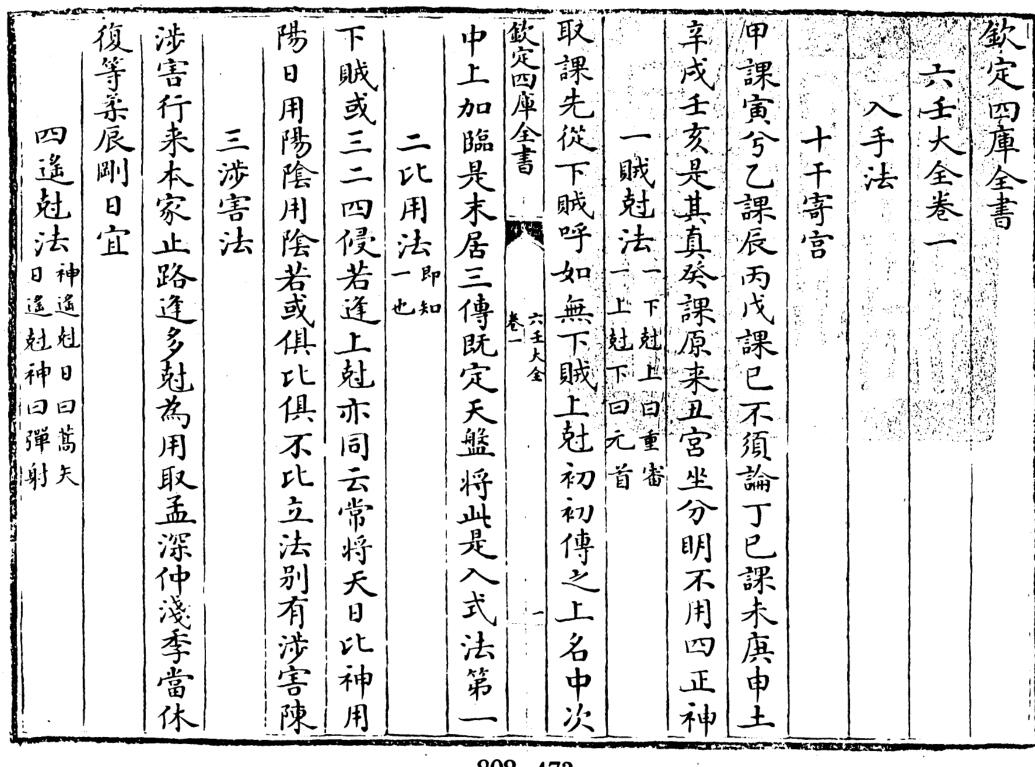 欽定四庫全書
六壬大全卷一
入手法
十干寄宮
甲課寅兮乙課辰丙戊課巳不須論丁巳課未庚申土
辛戌壬亥是其真癸課原来丑宮坐分明不用四正神
一賊尅法一下尅上曰重審
一上尅下曰元首
取課先從下賊呼如無下賊上尅初初傳之上名中次
欽定四庫全書
六壬大全
卷一
一
中上加臨是末居三傳既定天盤將此是入式法第一
二比用法即知
一也
下賊或三二四侵若逢上尅亦同云常將天日比神用
陽日用陽陰用陰若或俱比俱不比立法别有涉害陳
三涉害法
涉害行来本家止路逢多尅為用取孟深仲淺季當休
復等柔辰剛日宜
四遙尅法神遙尅日曰蒿矢
日遙尅神曰彈射